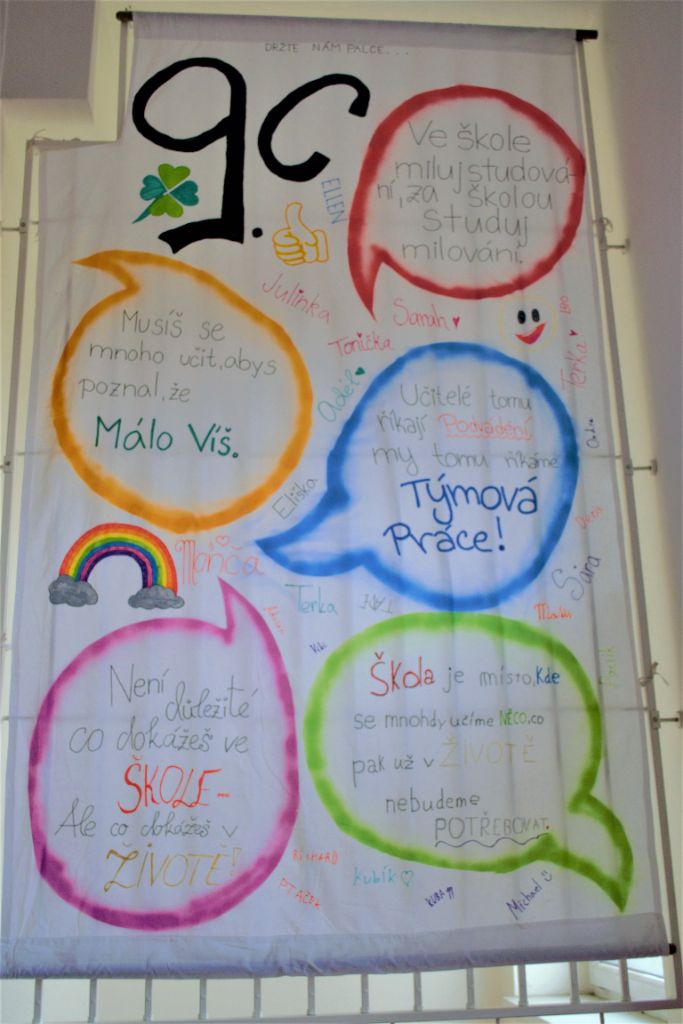 DRŽTE NÁM PALCE...
9.C
ELLEN
Ve škole
miluj studová-
ní, za školou
studuj
milování.
Julinka
Sarah
Tonička
LEO
Terka
Musíš se
mnoho učit, abys
poznal, že
Málo Víš.
Adél
Učitelé tomu
říkají Podvádění
my tomu říkáme
Týmová
Práce!
Eliška
Manča
Sára
Terka
Kiki
Není
důležité
co dokážeš ve
ŠKOLE-
Ale co dokážeš v
ŽIVOTĚ!
Škola je místo, Kde
se mnohdy učíme NĚCO, co
pak už v ŽIVOTĚ
nebudeme
POTŘEBOVAT.
RICHARD
PTÁČEK
Kubík
KUBA
Michael